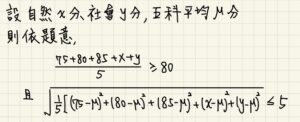 設自然x分、社會y分,五科平均μ分
則依題意,
\frac{75+80+85+x+y}{5} ≥ 80
且 \sqrt{\frac{1}{5}[(75-μ)^2+(80-μ)^2+(85-μ)^2+(x-μ)^2+(y-μ)^2} ≤ 5